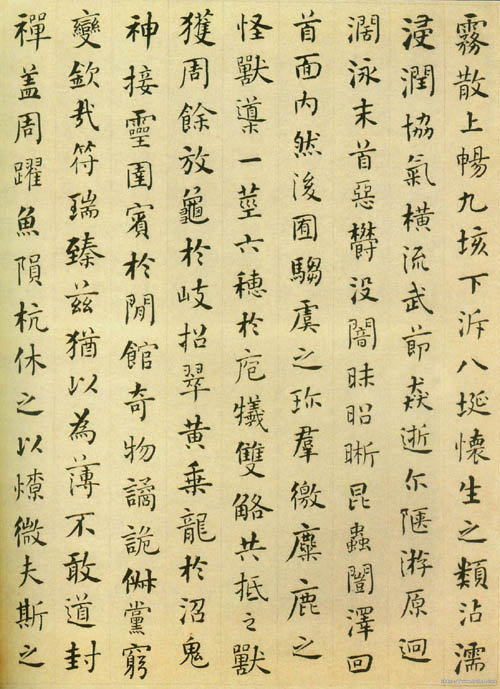 霧散上暢九垓下泝八埏懷生之類沾濡
浸潤協氣橫流武節猋逝尒陿游原迥
濶泳末首惡欝没闇昧昭晰昆蟲闓澤回
首面内然後囿騶虞之珎羣徼麋鹿之
怪獸一莖六穗於庖犧雙觡共抵之獸
獲周餘放龜於岐招翠黄乘龍於沼鬼
神接靈圉賓於閒館奇物譎詭俶黨窮
變欽哉符瑞臻兹猶以為薄不敢道封
禪盖周躍魚隕杭休之以燎微夫斯之